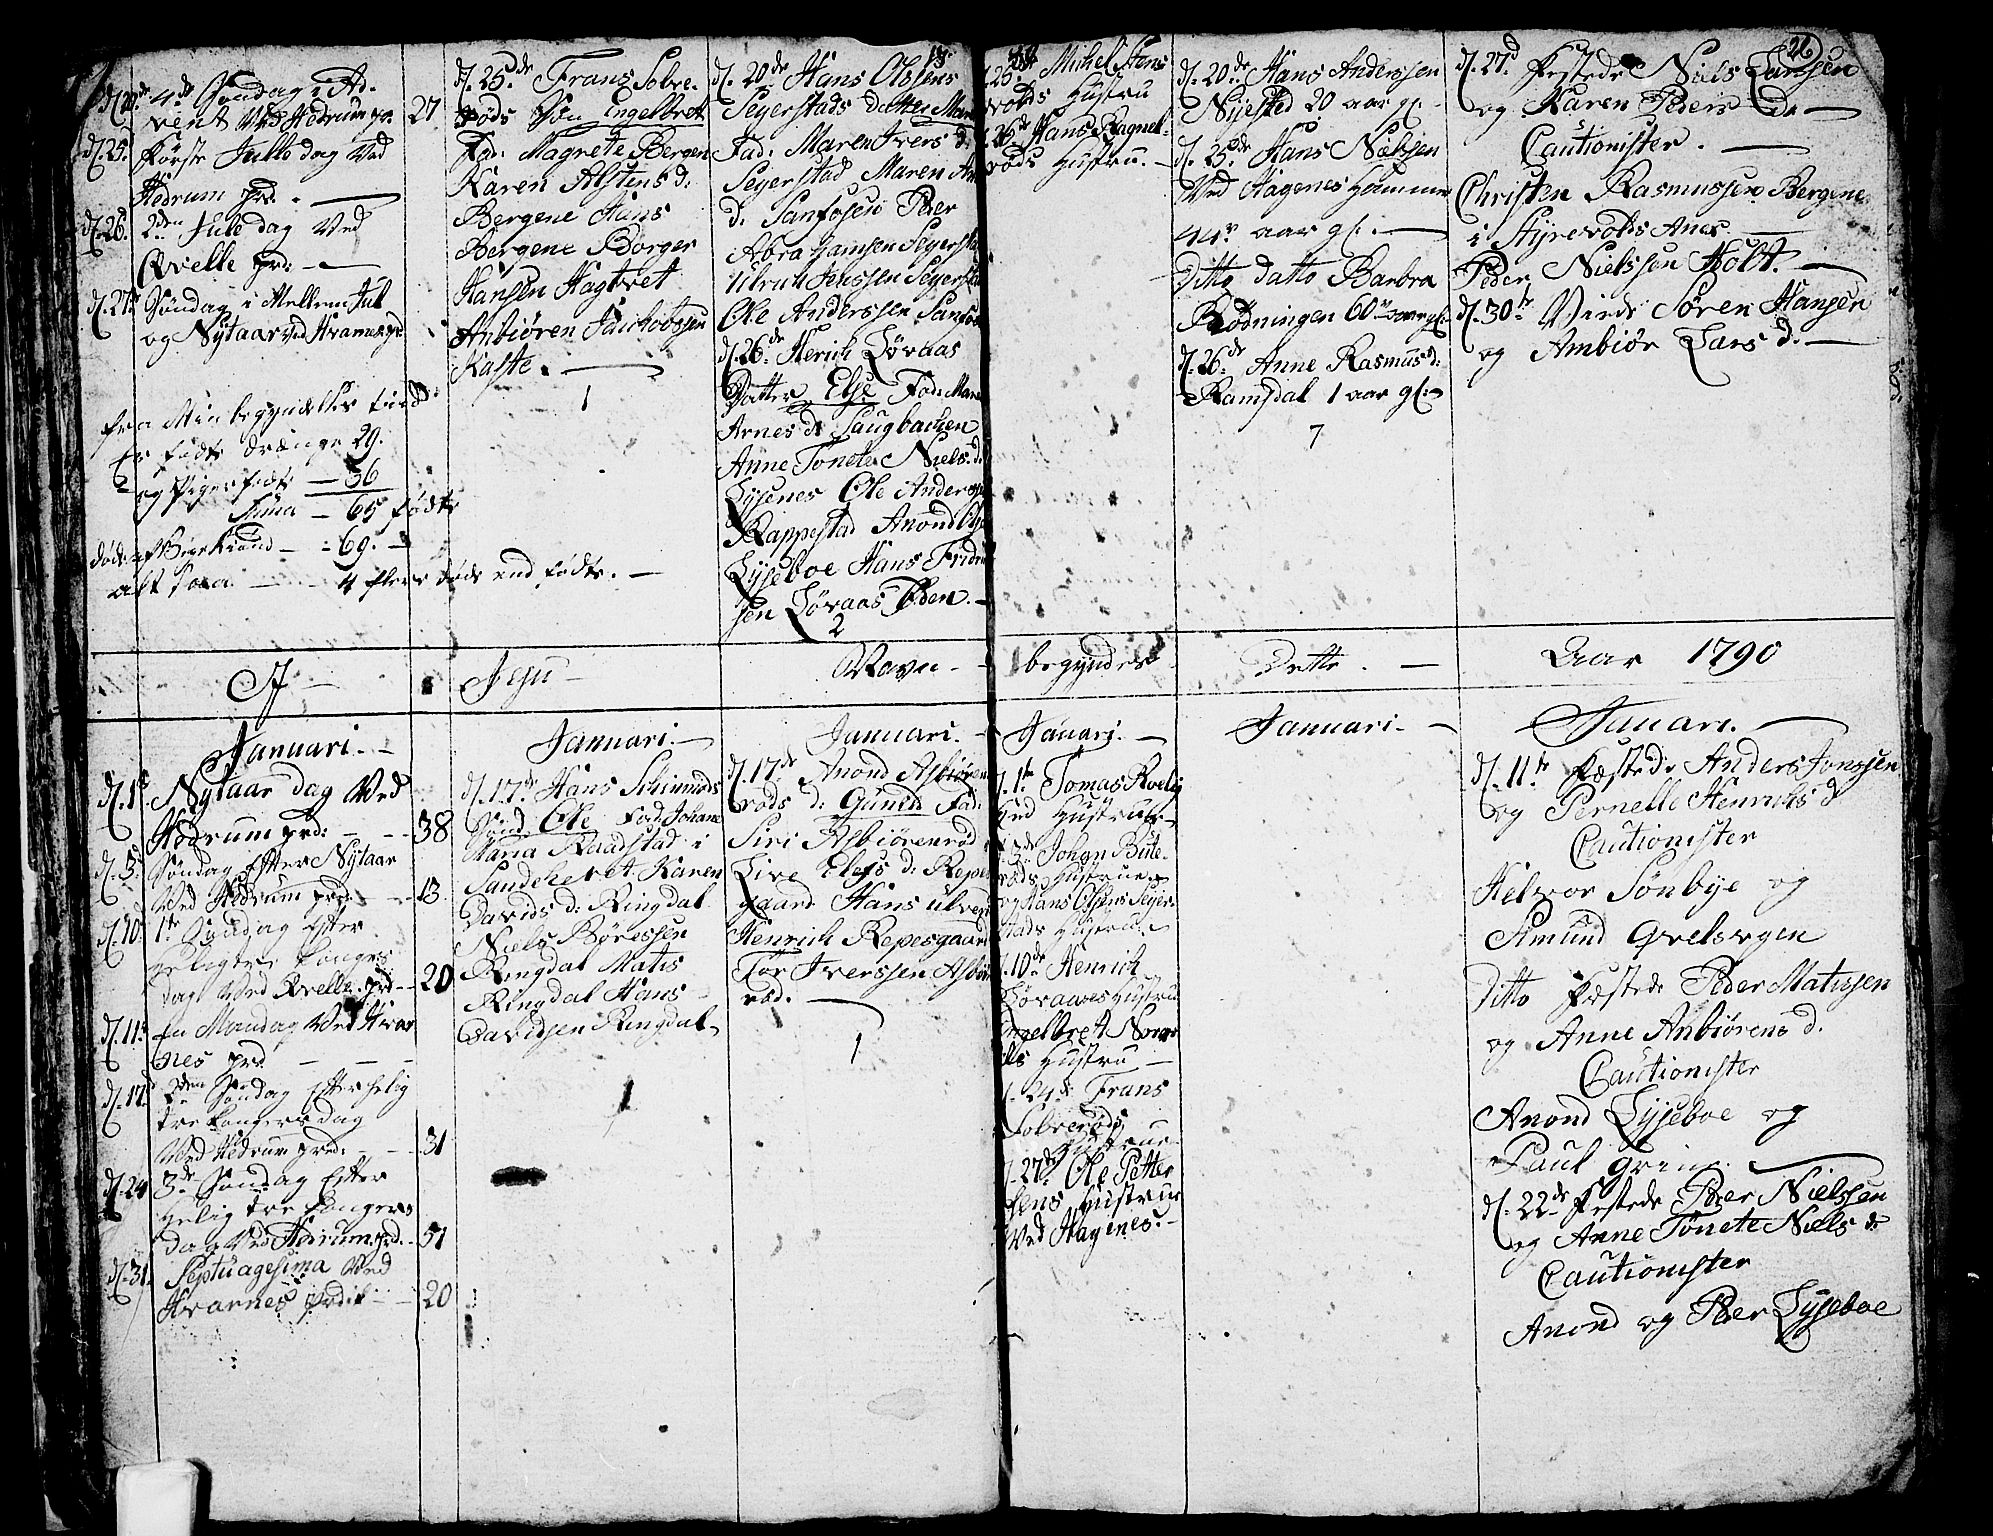 d. 20de 4de Søndag i Ad-
vent Ved Hedrum pr. 27
d. 25. Første Julle dag Ved
Hedrum prd. —
d. 26. 2den Jule dag Ved
Qvelle prd: —
d. 27de Søndag i Mellem Jul
og Nytaar ved Hvarnes prd
fra Min begyndelses tiid
Er fødte drænge 29.
og Piger fødte — 36
Suma — 65 fødte
døde af — 69. —
alt saa — 4 flere døde end fødte. —
d. 25de Frans Solve-
røds Søn Engelbret
Fad: Magrete Bergen
Karen Alstens d:
Bergene Hans
Bergene Borger
Hansen Hagtvet
Anbiøren Jachobssen
Kaste. —
1
18
d. 20de Hans Olssens
Seyerstads datter Mar
Fad: Maren Ivers d:
Seyerstad Maren An
d. Sanfosen Peder
Abrahamsen Seyersta
Ulrich Jenssen Seyersta
Ole Anderssen Sanfos
d. 26de Henrich Løvaas
Datter Else Fad: Mare
Arnes d: Haugbachen
Anne Tonete Niels d:
Lysenes Ole Anderss
Rappestad Anond
Lyseboe Hans Fridri
sen Løvaas Øden. —
2
25de Michel Stens
volds Hustru
26de Hans Ragnel-
røds Hustru. —
d. 20de Hans Anderssen
Nyested 20 aar gl. —
d. 25de Hans Nielssen
Ved Hagenes Hammer
44r aar gl. —
Ditto datto Barbra
Rødningen 60 aar gl.
d. 26de Anne Rasmus d:
Ramsdal 1 aar gl:
7
26
d. 27d Festede Niels Larssen
og Karen Peders d: —
Cautionister. —
Christen Rasmussen Bergene
i Styrvolds Anex —
Peder Nielssen Holt. —
d. 30te Viede Søren Hansen
og Ambiør Lars d. —
I — Jesu — Navn — begyndes Dette. — Aar 1790
Januari. —
d. 1te Nytaar dag Ved
Hedrum prd: — 38
d. 3de Søndag Efter Nytaar
Ved Hedrum prd: — 13
d. 10. 1te Søndag Efter
helig tre Konges
dag Ved Qvelle prd — 20
d. 11te en Mandag Ved Hvar
nes prd. — —
d. 17. 2den Søndag Efter helig
tre Kongers dag
Ved Hedrum prd: — 31
d. 24 3de Søndag Efter
Helig tre Kongers
dag Ved Hedrum prd. 51
d. 31. Septuagesima Ved
Hvarnes prdik — 20
Januari. —
d. 17de Hans Schinnrøds
Søn Ole Fad: Johane
Maria Raadstad i
Sandeherret Karen
Davids d: Ringdal
Niels Børessen
Ringdal Matis
Ringdal Hans
Davidsen Ringdal
1
Januari. —
d. 17de Anond Asbiøren
røds d: Guneld Fad:
Siri Asbiørenrød
Live Elefs d: Repes
gaard Hans Ulven
Henrich Repesgaard
Tor Iverssen Asbiø
rød. —
1
Januari. —
d. 1te Tomas Kvelig
hed Hustrue
3de Johan Bute-
røds Hustrue
og Hans Olsens Seyer
stads Hustru
d. 10de Henrich
Løvaases Hustru
Engelbret
Hustru —
d. 24de Frans
Solverøds
Hustrue
d. 27de Ole Petter
sens Hustrue
Ved Hagenes. —
Januari. —
Januari. —
d. 11te Fæstede Anders Jonssen
og Pernelle Henrichs d
Cautionister
Helvor Sønbye og
Amund Qvelsvgen
Ditto Fæstede Peder Matissen
og Anne Anbiørens d.
Cautionister
Anond Lyseboe og
Paul Grine. —
d. 22de Festede Peder Nielssen
og Anne Tonete Niels d:
Cautionister
Anond og Peder Lyseboe